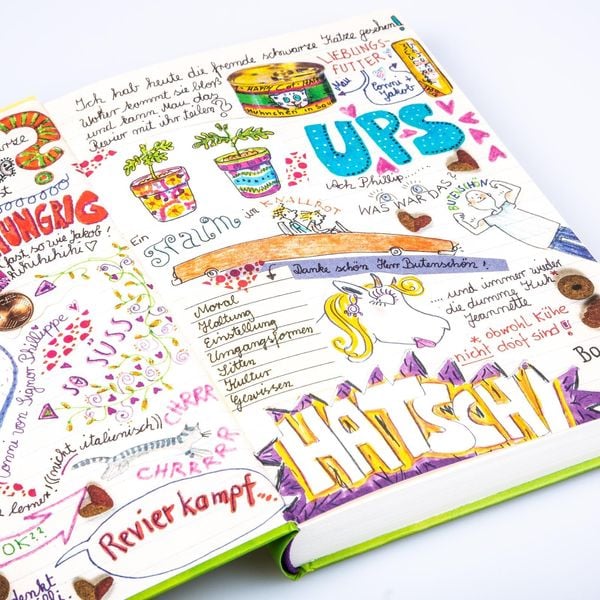 Ich hab heute die fremde schwarze Katze gesehen!
Woher kommt sie bloß
und kann Mau das
Revier mit ihr teilen?
HAPPY CAT
Hühnchen in
LIEBLINGS-
FUTTER!
Mau
Conni +
Jakob
UPS
Ach Phillip.....
WAS WAR DAS?
BUTENSCHÖN
Ein
TRAUM
in KNALLROT
Danke schön Herr Butenschön!
Moral
Haltung
Einstellung
Umgangsformen
Sitten
Kultur
Gewissen
.... und immer wieder
die dumme Kuh*
Jeannette
* obwohl Kühe
nicht doof sind!
Bo
HATSCHI
?
HUNGRIG
fast so wie Jakob!
Hihihihihi ♡
SO SÜSS
Conni von Signor Phillippe
lernen! (nicht italienisch)
CHRRR
CHRRRR
CHRRRRR
Revierkampf...
OK??
denkt